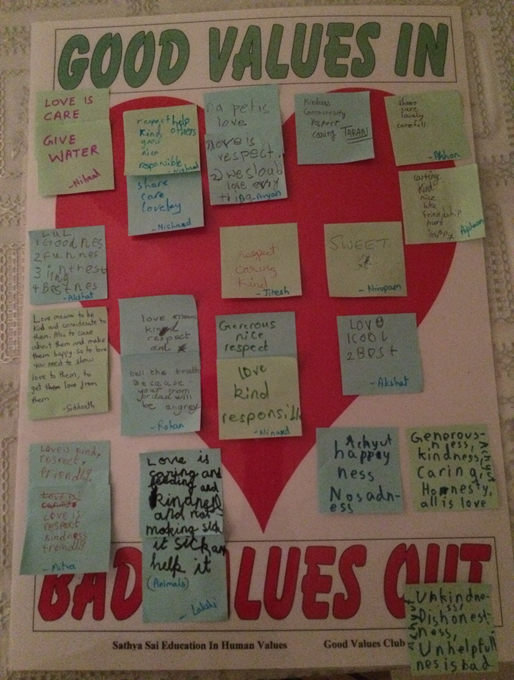 GOOD VALUES IN
LOVE IS
CARE
GIVE
WATER
-Nihad
respect help
Kind others
good
nice
responsible
share
care
loveley
- Nichad
love
love is
respect.
love evry
Kindness
Generousity
Respect
caring TARAN
share
care
lovely
carefull
caring
Kind
nice
like
friendship
hurt
happy
LUL
1 Goodnes
2 Funnes
3 inthrest
ing
4 Bestnes
- Akshat
respect
caring
Kind
- Jitesh
SWEET
- Niroopam
Love means to be
kind and considerate to
them. Also to care
about them and make
them happy so to love
you need to show
love to them, to
get them love from
them
love
kind
respect
and
tell the truth
because
your mum
or dad will
be angry
- Rohan
Generous
nice
respect
love
kind
responsible
- Ninaad
LOVE
1 COOL
2 BEST
- Akshat
Love is kind,
respect,
friendly.
Love is
respect
kindness
friendly
Love is
caring and
feeding and
kindness
and not
making sick
it sick an
help it
(Animals)
- Lakshi
Achyut
happey
ness
No sadn-
ess
Generous-
ness,
kindness,
Caring,
Honesty,
all is love
Achyut
BAD VALUES OUT
Unkindne-
ss,
Dishonest-
ness,
Unhelpfull
nes is bad
Sathya Sai Education In Human Values
Good Values Club